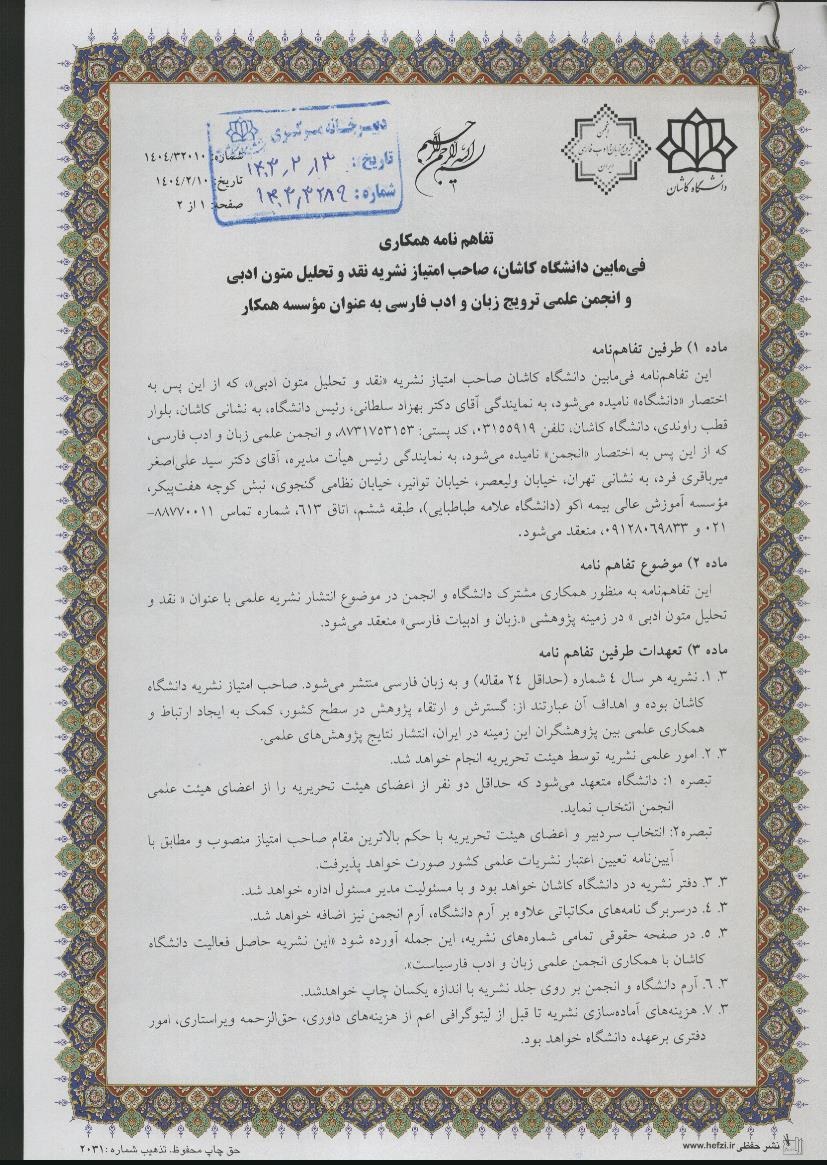 بسم الله الرحمن الرحیم
دانشگاه کاشان
انجمن
ترویج زبان و ادب فارسی
ایران
شماره: ۱۴۰۴/۳۲۰۱۰
تاریخ: ۱۴۰۴/۲/۱۰
صفحه: ۱ از ۲
دبیرخانه مرکزی
دانشگاه کاشان
تاریخ:
شماره:
تفاهم نامه همکاری
فی‌مابین دانشگاه کاشان، صاحب امتیاز نشریه نقد و تحلیل متون ادبی
و انجمن علمی ترویج زبان و ادب فارسی به عنوان مؤسسه همکار
ماده ۱) طرفین تفاهم‌نامه
این تفاهم‌نامه فی‌مابین دانشگاه کاشان صاحب امتیاز نشریه «نقد و تحلیل متون ادبی»، که از این پس به
اختصار «دانشگاه» نامیده می‌شود، به نمایندگی آقای دکتر بهزاد سلطانی، رئیس دانشگاه، به نشانی کاشان، بلوار
قطب راوندی، دانشگاه کاشان، تلفن ۰۳۱۵۵۹۱۹، کد پستی: ۸۷۳۱۷۵۳۱۵۳، و انجمن علمی زبان و ادب فارسی،
که از این پس به اختصار «انجمن» نامیده می‌شود، به نمایندگی رئیس هیأت مدیره، آقای دکتر سید علی‌اصغر
میرباقری فرد، به نشانی تهران، خیابان ولیعصر، خیابان توانیر، خیابان نظامی گنجوی، نبش کوچه هفت‌پیکر،
مؤسسه آموزش عالی بیمه اکو (دانشگاه علامه طباطبایی)، طبقه ششم، اتاق ۶۱۳، شماره تماس ۸۸۷۷۰۰۱۱–
۰۲۱ و ۰۹۱۲۸۰۶۹۸۳۳، منعقد می‌شود.
ماده ۲) موضوع تفاهم نامه
این تفاهم‌نامه به منظور همکاری مشترک دانشگاه و انجمن در موضوع انتشار نشریه علمی با عنوان « نقد و
تحلیل متون ادبی » در زمینه پژوهشی «.زبان و ادبیات فارسی» منعقد می‌شود.
ماده ۳) تعهدات طرفین تفاهم نامه
۳. ۱. نشریه هر سال ۴ شماره (حداقل ۲۴ مقاله) و به زبان فارسی منتشر می‌شود. صاحب امتیاز نشریه دانشگاه
کاشان بوده و اهداف آن عبارتند از: گسترش و ارتقاء پژوهش در سطح کشور، کمک به ایجاد ارتباط و
همکاری علمی بین پژوهشگران این زمینه در ایران، انتشار نتایج پژوهش‌های علمی.
۳. ۲. امور علمی نشریه توسط هیئت تحریریه انجام خواهد شد.
تبصره ۱: دانشگاه متعهد می‌شود که حداقل دو نفر از اعضای هیئت تحریریه را از اعضای هیئت علمی
انجمن انتخاب نماید.
تبصره۲: انتخاب سردبیر و اعضای هیئت تحریریه با حکم بالاترین مقام صاحب امتیاز منصوب و مطابق با
آیین‌نامه تعیین اعتبار نشریات علمی کشور صورت خواهد پذیرفت.
۳. ۳. دفتر نشریه در دانشگاه کاشان خواهد بود و با مسئولیت مدیر مسئول اداره خواهد شد.
۳. ۴. درسربرگ نامه‌های مکاتباتی علاوه بر آرم دانشگاه، آرم انجمن نیز اضافه خواهد شد.
۳. ۵. در صفحه حقوقی تمامی شماره‌های نشریه، این جمله آورده شود «این نشریه حاصل فعالیت دانشگاه
کاشان با همکاری انجمن علمی زبان و ادب فارسیاست».
۳. ۶. آرم دانشگاه و انجمن بر روی جلد نشریه با اندازه یکسان چاپ خواهدشد.
۳. ۷. هزینه‌های آماده‌سازی نشریه تا قبل از لیتوگرافی اعم از هزینه‌های داوری، حق‌الزحمه ویراستاری، امور
دفتری برعهده دانشگاه خواهد بود.
نشر حفظی www.hefzi.ir
حق چاپ محفوظ. تذهیب شماره: ۲۰۳۱